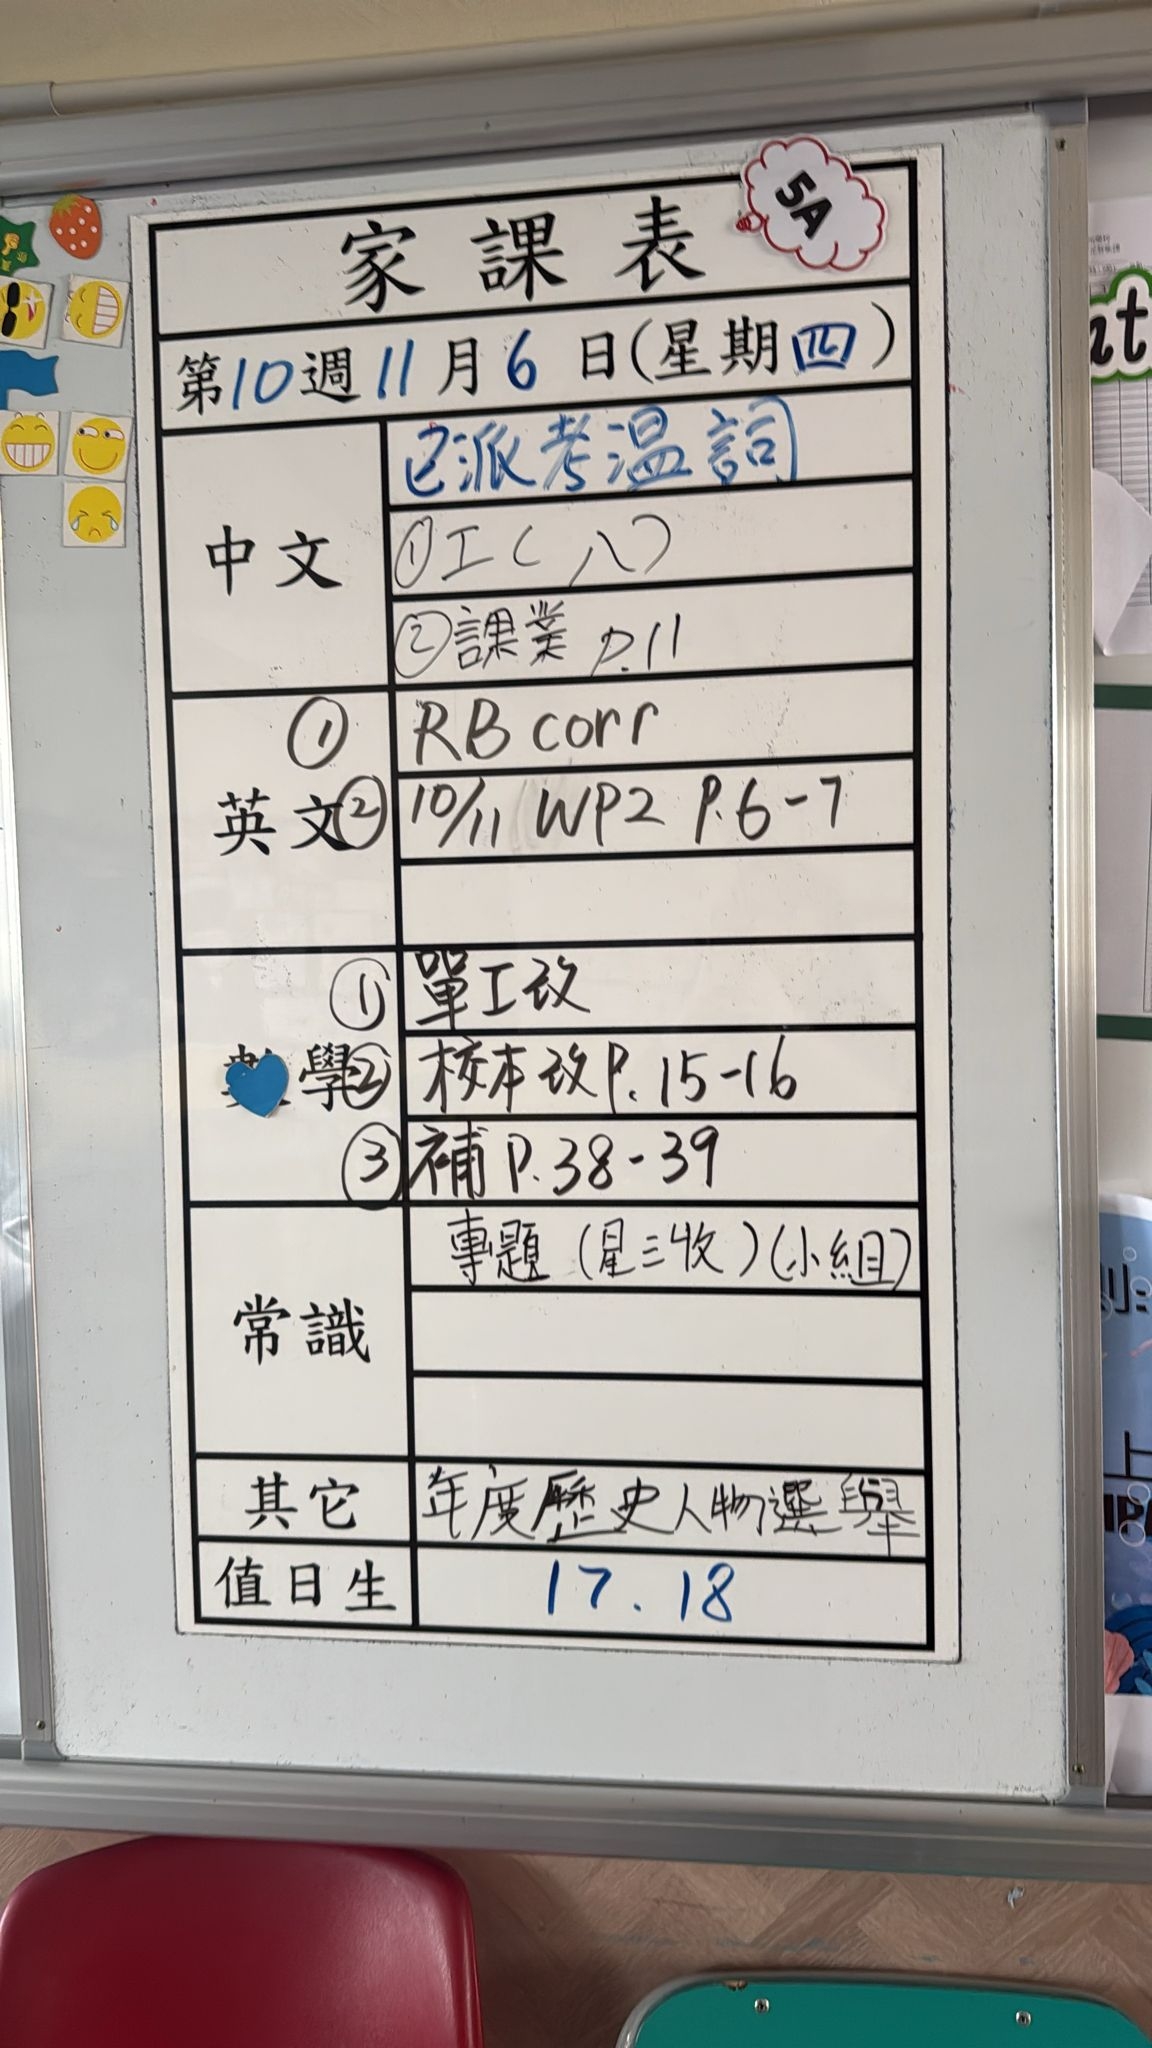 5A
家課表
第10週11月6日(星期四)
中文
已派考溫詞
①工(八)
②課業 P.11
英文
① RB corr
② 10/11 WP2 P.6-7
學
① 單工改
② 校本改P.15-16
③ 補P.38-39
常識
專題(星三收)(小組)
其它
年度歷史人物選舉
值日生
17.18